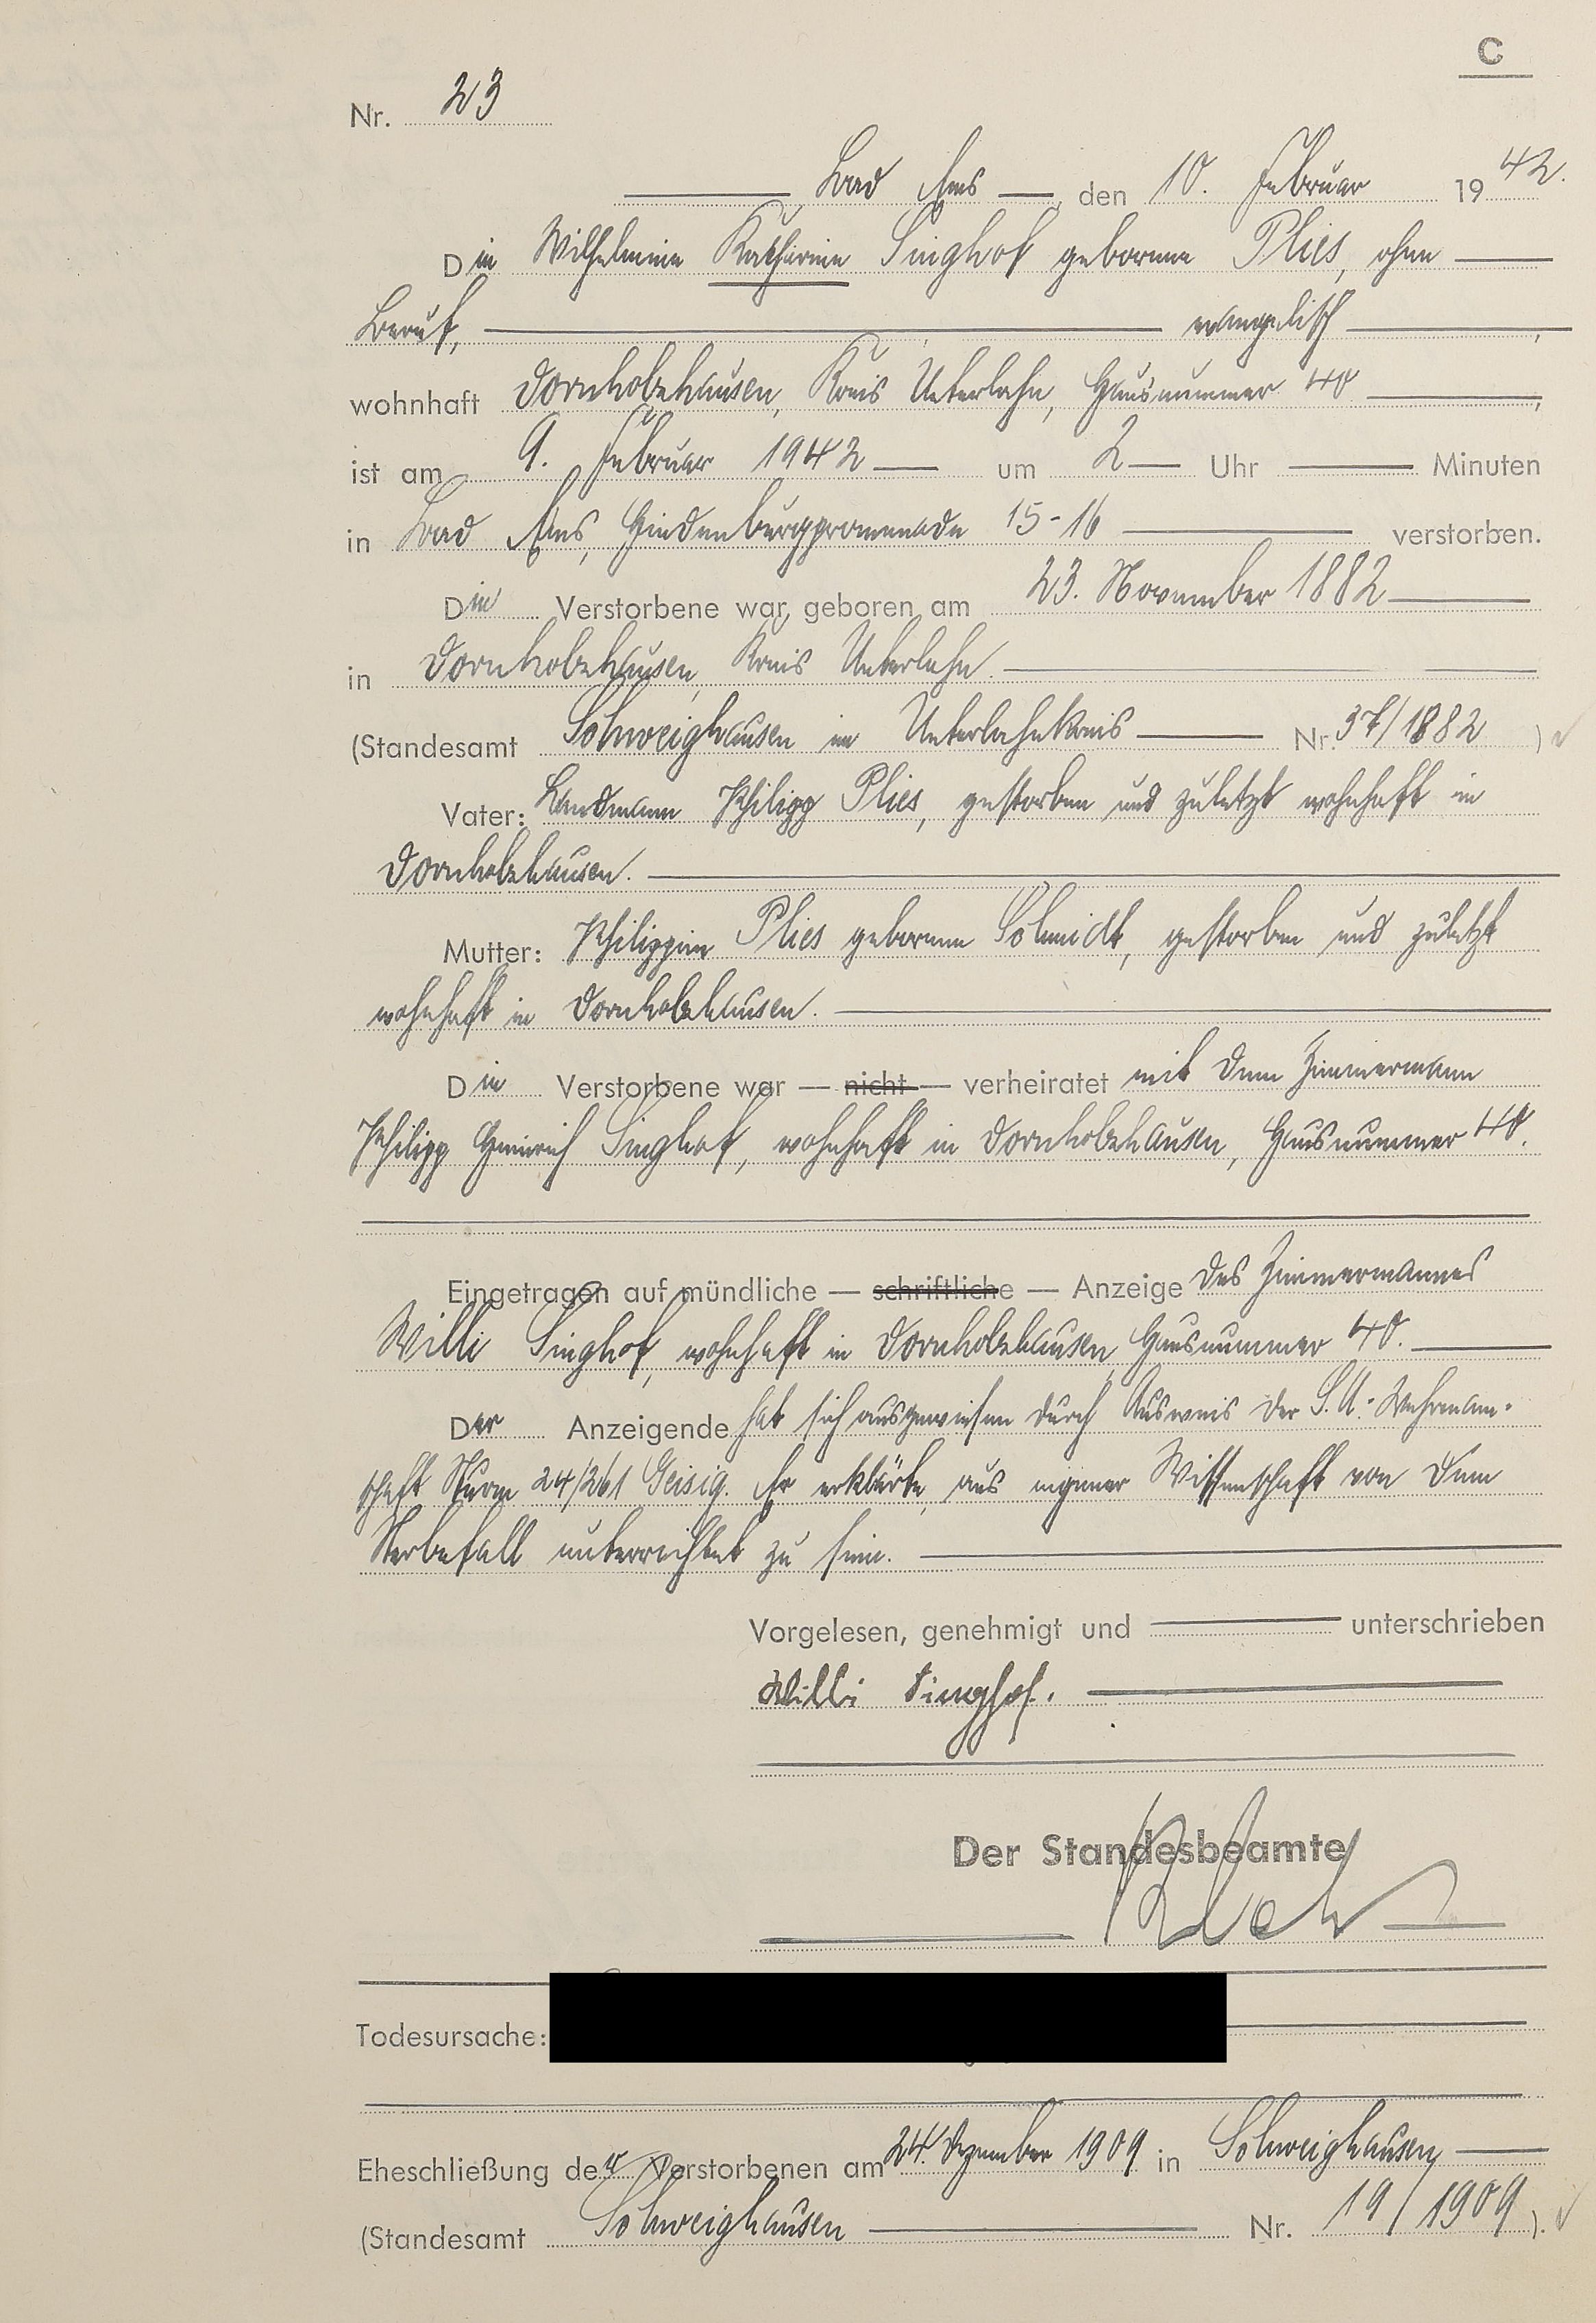 C
Nr. 23
Bad Ems, den 10. Februar 1942.
Die Wilhelmine Katharine Singhof geborene Plies, ohne
Beruf, evangelisch,
wohnhaft Dornholzhausen, Kreis Unterlahn, Hausnummer 40,
ist am 9. Februar 1942 um 2 Uhr Minuten
in Bad Ems, Hindenburgpromenade 15-16 verstorben.
Die Verstorbene war geboren am 23. November 1882
in Dornholzhausen, Kreis Unterlahn.
(Standesamt Schweighausen im Unterlahnkreis Nr. 37/1882)
Vater: Landmann Philipp Plies, gestorben und zuletzt wohnhaft in
Dornholzhausen.
Mutter: Philippine Plies geborene Schmidt, gestorben und zuletzt
wohnhaft in Dornholzhausen.
Die Verstorbene war — nicht — verheiratet mit dem Zimmermann
Philipp Heinrich Singhof, wohnhaft in Dornholzhausen, Hausnummer 40.
Eingetragen auf mündliche — schriftliche — Anzeige des Zimmermannes
Willi Singhof, wohnhaft in Dornholzhausen, Hausnummer 40.
Der Anzeigende hat sich ausgewiesen durch Ausweis der S.A.-Wehrmann-
schaft Sturm 24/261 Geisig. Er erklärte, aus eigener Wissenschaft von dem
Sterbefall unterrichtet zu sein.
Vorgelesen, genehmigt und unterschrieben
Willi Singhof.
Der Standesbeamte
Todesursache:
Eheschließung der Verstorbenen am 24. Dezember 1909 in Schweighausen
(Standesamt Schweighausen Nr. 19/1909).